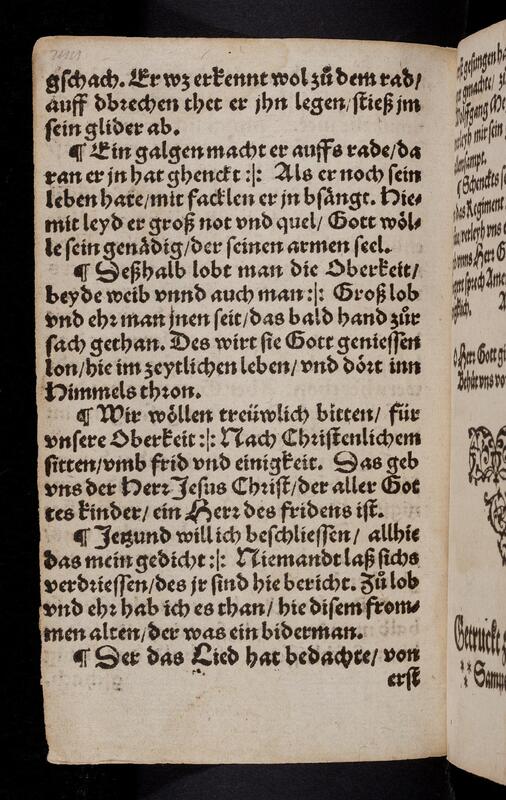 gschach. Er wz erkennt wol zů dem rad/
auff dbrechen thet er jhn legen/ stieß jm
sein glider ab.
¶ Ein galgen macht er auffs rade/ da
ran er jn hat ghenckt :|: Als er noch sein
leben hate/ mit facklen er jn bsängt. Hie⸗
mit leyd er groß not vnd quel/ Gott wöl⸗
le sein genädig/ der seinen armen seel.
¶ Deßhalb lobt man die Oberkeit/
beyde weib vnnd auch man :|: Groß lob
vnd ehr man jnen seit/ das bald hand zůr
sach gethan. Des wirt sie Gott geniessen
lon/ hie im zeytlichen leben/ vnd dört inn
Himmels thron.
¶ Wir wöllen treüwlich bitten/ für
vnsere Oberkeit :|: Nach Christenlichem
sitten/ vmb frid vnd einigkeit. Das geb
vns der Herr Jesus Christ/ der aller Got
tes kinder/ ein Herr des fridens ist.
¶ Jetzund will ich beschliessen/ allhie
das mein gedicht :|: Niemandt laß sichs
verdriessen/ des jr sind hie bericht. Zů lob
vnd ehr hab ich es than/ hie disem from⸗
men alten/ der was ein biderman.
¶ Der das Lied hat bedachte/ von
erst
gesungen ha
gmachte/ zů
Wolffgang
verleyh mit sein
¶ Schenckts
das Regiment
verleyh vns
vnns Herr G
sprech Ame
O Herr Gott
Behüt vns vo
Getruckt